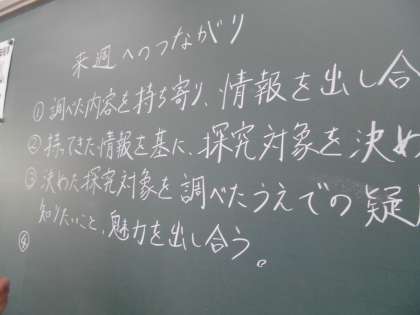 来週へのつながり
① 調べた内容を持ち寄り、情報を出し合
② 持ってきた情報を基に、探究対象を決め
③ 決めた探究対象を調べたうえでの疑
知りたいこと、魅力を出し合う。
④